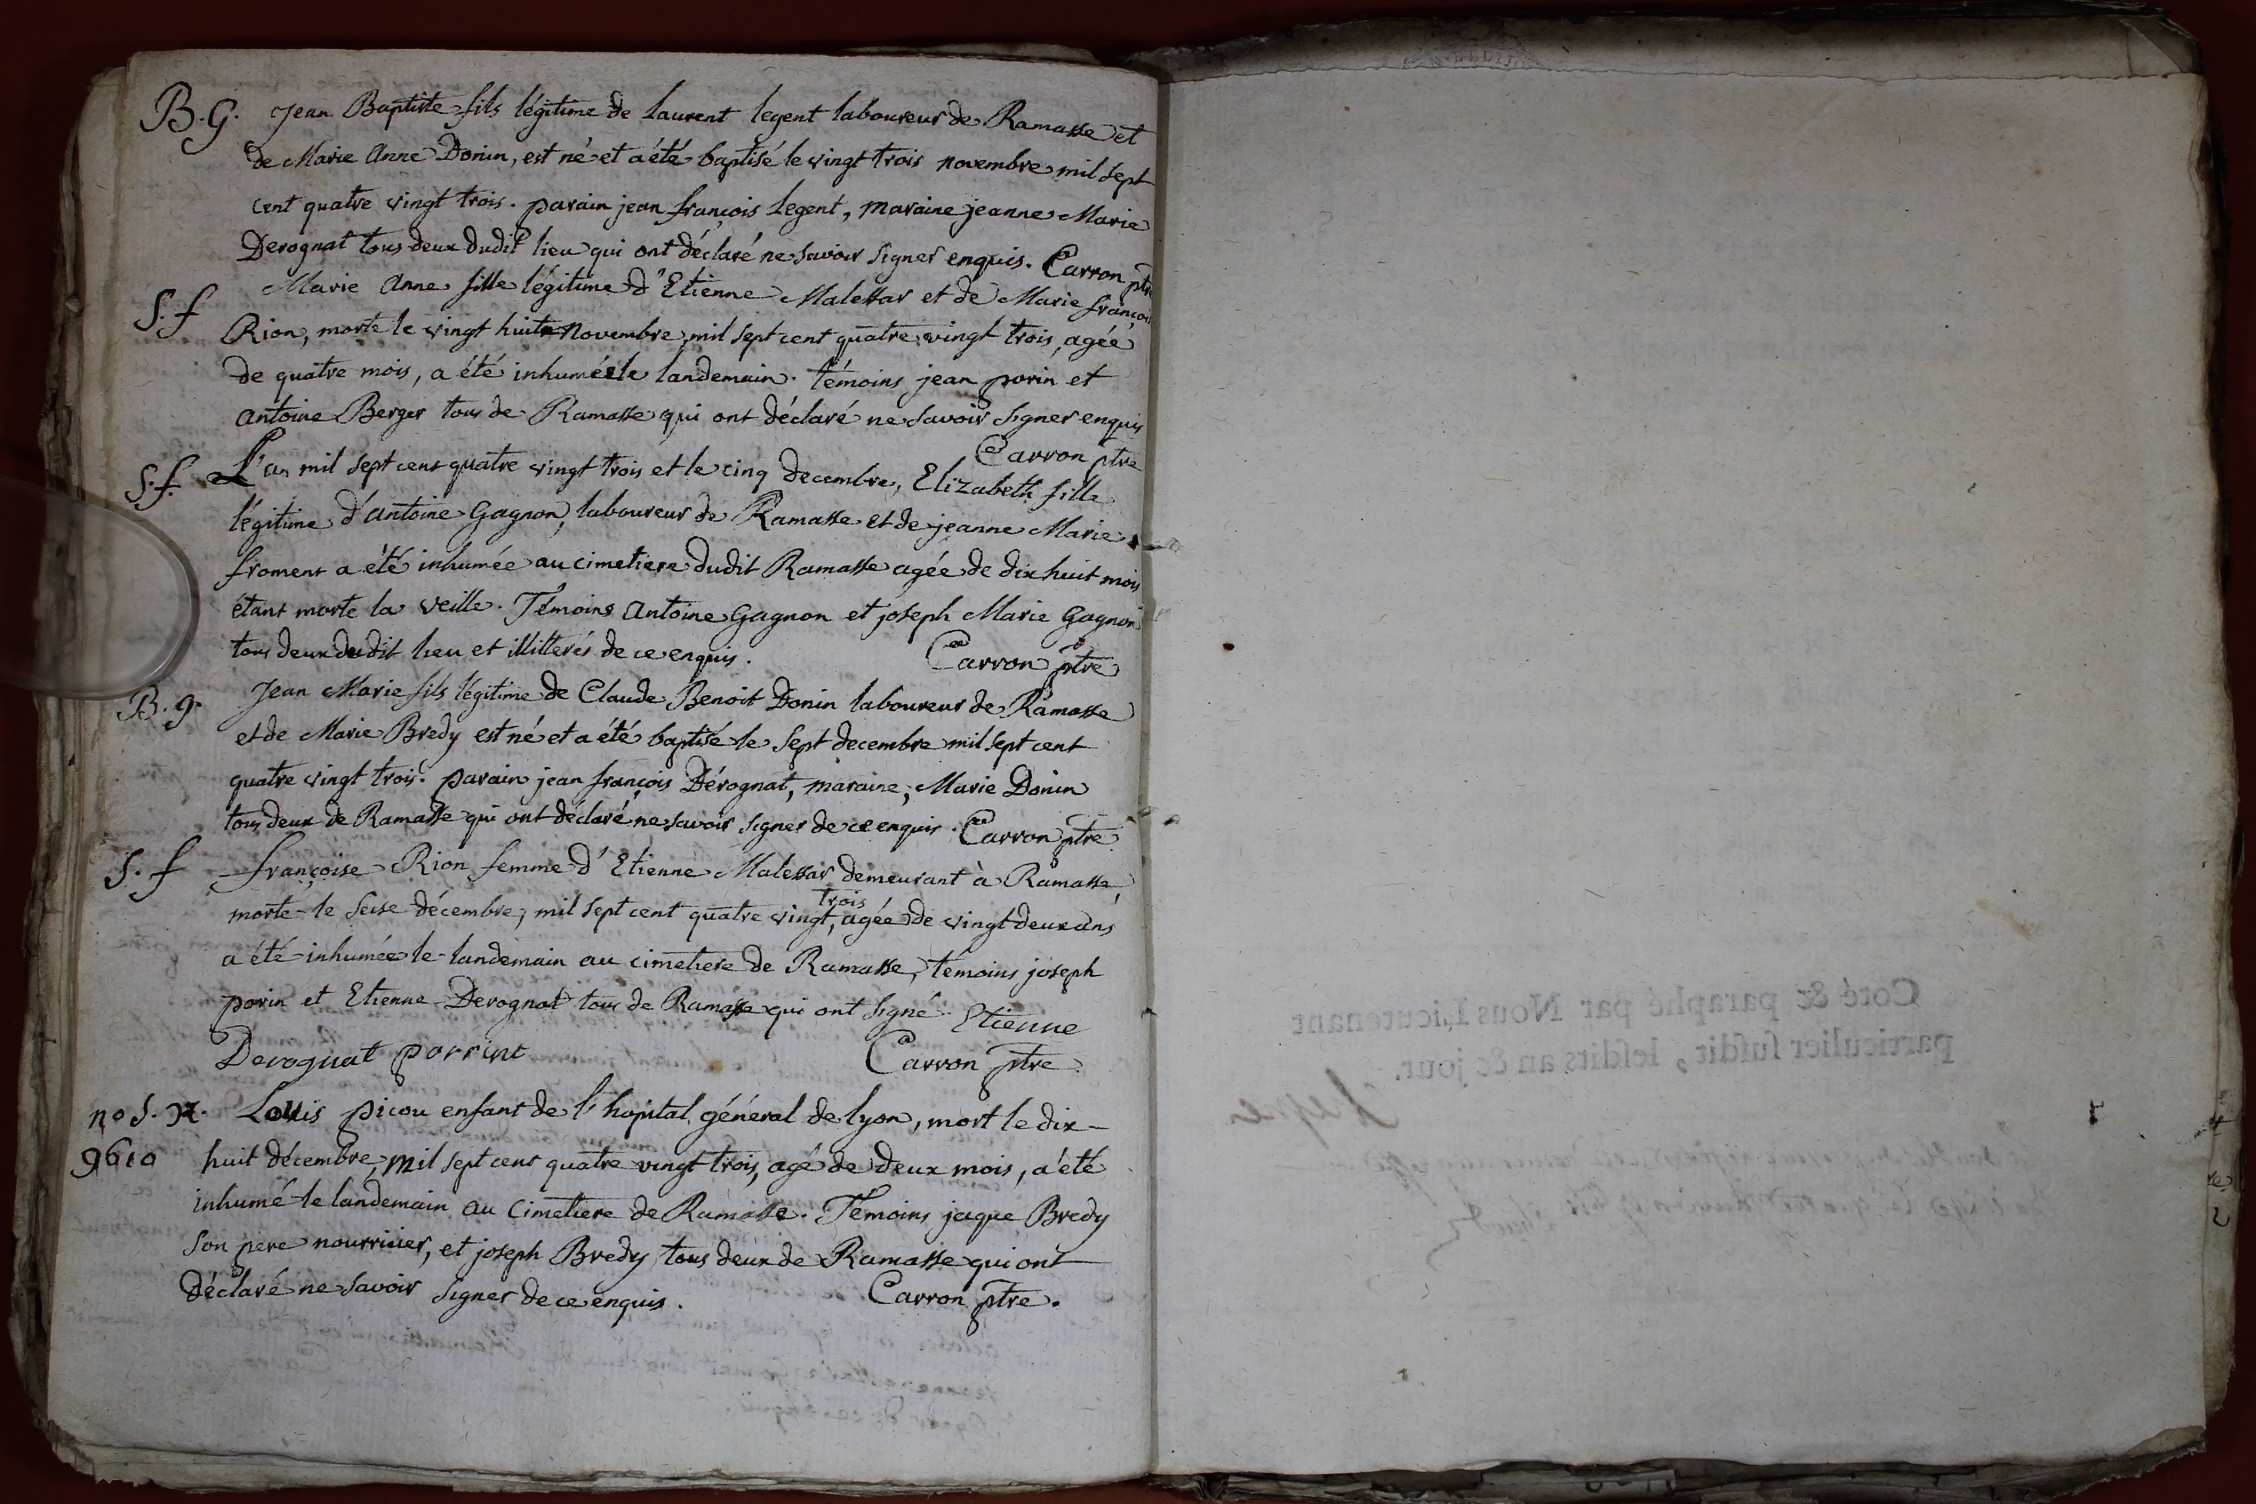 B.G. Jean Baptiste fils légitime de Laurent legent laboureur de Ramasse et
de Marie Anne Donin, est né et a été baptisé le vingt trois novembre mil sept
cent quatre vingt trois. parain jean françois Legent, maraine jeanne Marie
Derognat tous deux dudit lieu qui ont déclaré ne savoir signer enquis. Carron ptre
S.f Marie Anne fille légitime d'Etienne Malessar et de Marie françoi
Rion, morte le vingt huit novembre mil sept cent quatre vingt trois, agée
de quatre mois, a été inhumée le landemain. témoins jean porin et
antoine Berger tous de Ramasse qui ont déclaré ne savoir signer enquis
Carron ptre
S.f. L'an mil sept cent quatre vingt trois et le cinq decembre, Elizabeth fille
légitime d'antoine Gagnon, laboureur de Ramasse et de jeanne Marie
froment a été inhumée au cimetiere dudit Ramasse agée de dix huit mois
étant morte la veille. Témoins antoine Gagnon et joseph Marie Gagnon
tous deux dudit lieu et illitterés de ce enquis. Carron ptre
B.g. Jean Marie fils légitime de Claude Benoit Donin laboureur de Ramasse
et de Marie Bredy est né et a été baptisé le sept decembre mil sept cent
quatre vingt trois. parain jean françois Dérognat, maraine, Marie Donin
tous deux de Ramasse qui ont déclaré ne savoir signer de ce enquis. Carron ptre
S.f françoise Rion femme d'Etienne Malessar demeurant à Ramasse,
trois
morte le seise décembre, mil sept cent quatre vingt, agée de vingt deux ans
a été inhumée le landemain au cimetiere de Ramasse, témoins joseph
porin et Etienne Derognat tous de Ramasse qui ont signé. Etienne
Derognat porrint Carron ptre
no S. Louis picou enfant de l'hopital général de lyon, mort le dix-
9610 huit décembre, mil sept cent quatre vingt trois, agé de deux mois, a été
inhumé le landemain au cimetiere de Ramasse. Témoins jaque Bredy
son pere nourricier, et joseph Bredy tous deux de Ramasse qui ont
déclaré ne savoir signer de ce enquis. Carron ptre.
Coté & paraphé par Nous Lieutenant
particulier susdit, lesdits an & jour.